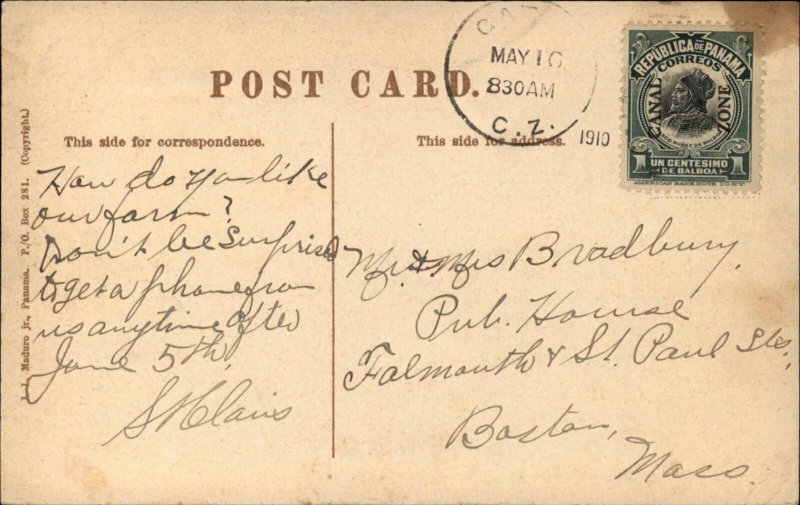 POST CARD.
This side for correspondence.
How do you like
our farm?
Don't be Surprised
to get a phone from
us anytime after
June 5th,
This side for address.
Mr. & Mrs Bradbury,
Pub. House
Falmouth & St. Paul Sts,
Boston,
Mass.
MAY 10
830AM
C. Z.
1910
REPUBLICA DE PANAMA
CORREOS
CANAL ZONE
1 UN CENTESIMO 1
DE BALBOA
AMERICAN BANK NOTE CO. N.Y.
Maduro jr., Panama. P./O. Box 281. (Copyright.)